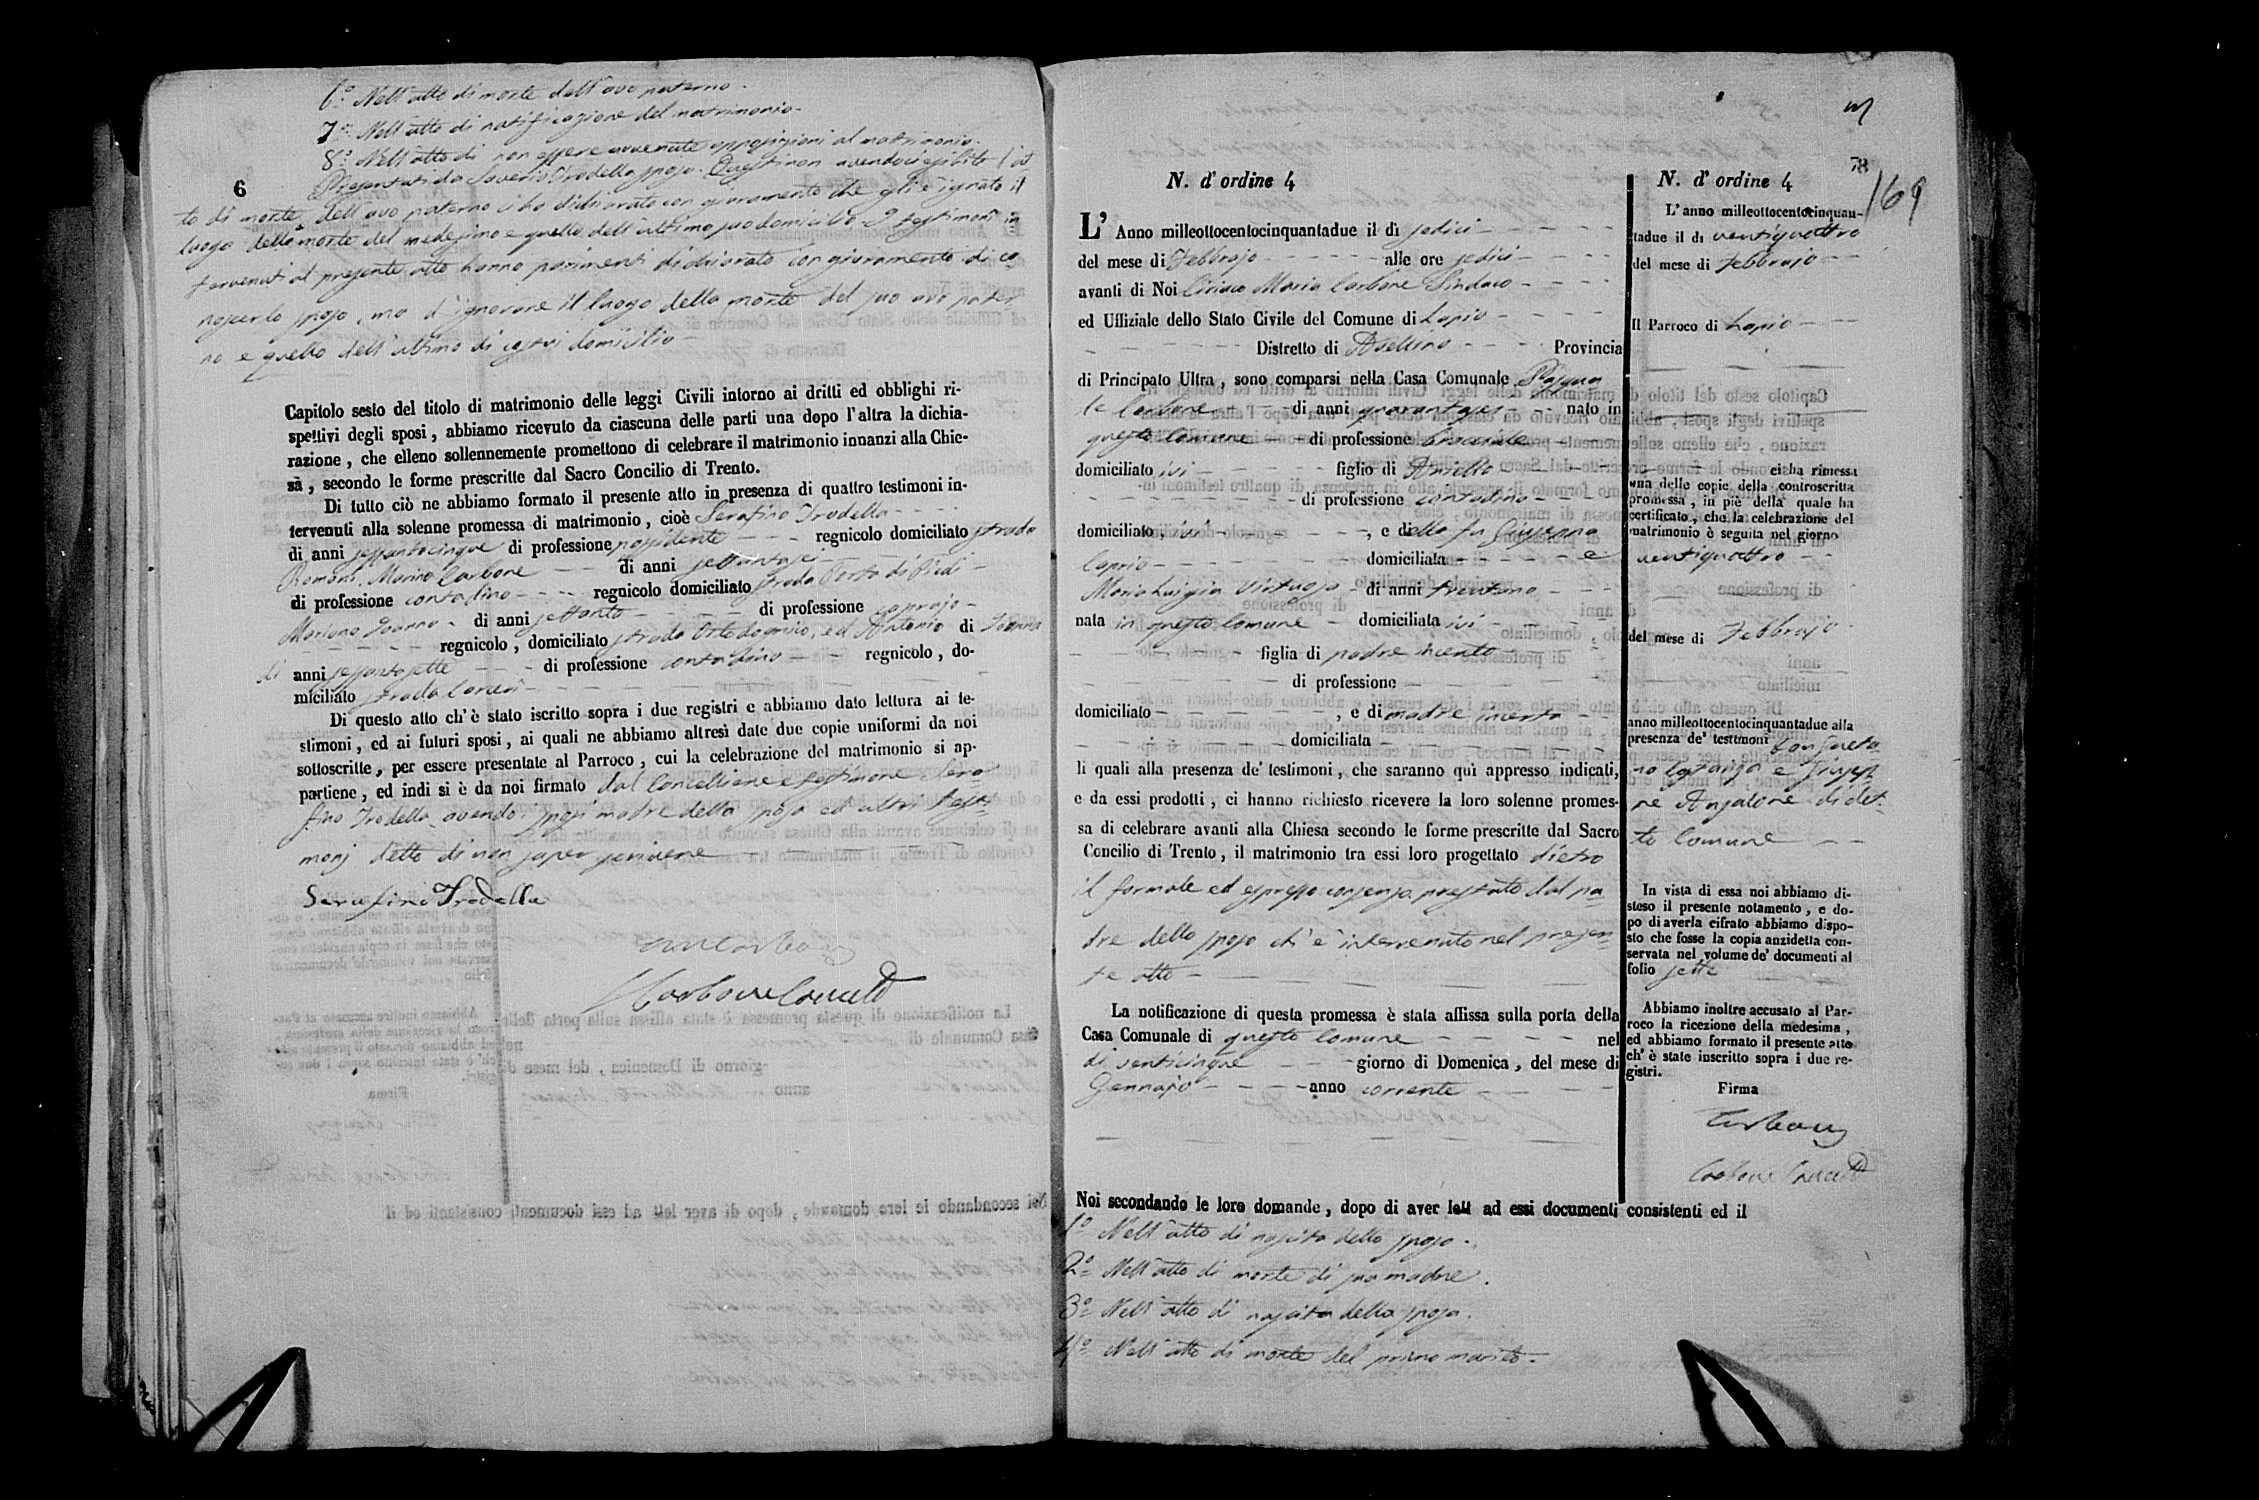 6.° Nell'atto di morte dell'avo paterno.
7.° Nell'atto di notificazione del matrimonio.
8.° Nell'atto di non essere avvenute opposizioni al matrimonio.
Presentati da Saverio Trodella sposo. Questi non avendoci esibito l'at
6
to di morte dell'avo paterno ci ha dichiarato con giuramento che gli è ignoto il
luogo della morte del medesimo e quello dell'ultimo suo domicilio. I testimoni in
tervenuti al presente atto hanno parimenti dichiarato con giuramento di co
noscerlo sposo, ma d'ignorare il luogo della morte del suo avo pater
no e quello dell'ultimo di costui domicilio
Capitolo sesto del titolo di matrimonio delle leggi Civili intorno ai dritti ed obblighi ri-
spettivi degli sposi, abbiamo ricevuto da ciascuna delle parti una dopo l'altra la dichia-
razione, che elleno sollennemente promettono di celebrare il matrimonio innanzi alla Chie-
sa, secondo le forme prescritte dal Sacro Concilio di Trento.
Di tutto ciò ne abbiamo formato il presente atto in presenza di quattro testimoni in-
tervenuti alla solenne promessa di matrimonio, cioè Serafino Trodella
di anni sessantacinque di professione possidente regnicolo domiciliato strada
Romani, Marino Carbone di anni settantasei
di professione contadino regnicolo domiciliato strada Porta di Piedi
Mariano Joanna di anni settanta di professione caprajo
regnicolo, domiciliato strada Ortodomnico, ed Antonio di
di anni sessantasette di professione contadino regnicolo, do-
miciliato strada
Di questo atto ch'è stato iscritto sopra i due registri e abbiamo dato lettura ai te-
stimoni, ed ai futuri sposi, ai quali ne abbiamo altresì date due copie uniformi da noi
sottoscritte, per essere presentate al Parroco, cui la celebrazione del matrimonio si ap-
partiene, ed indi si è da noi firmato dal Cancelliere e testimone Sera
fino Trodella avendo i sposi madre della sposa ed altri testi-
monj detto di non saper scrivere
Serafino Trodella
Carbone
Carbone Cancell
78
169
N. d'ordine 4
L'Anno millеottocentocinquantadue il dì sedici
del mese di Febbrajo alle ore sedici
avanti di Noi Ciriaco Maria Carbone Sindaco
ed Uffiziale dello Stato Civile del Comune di Lapio
Distretto di Avellino Provincia
di Principato Ultra, sono comparsi nella Casa Comunale Pasqua
le Carbone di anni quarantasei nato in
questo Comune di professione bracciale
domiciliato ivi figlio di Aniello
di professione contadino
domiciliato ivi, e della fu Giovanna
Caprio domiciliata e
Maria Luigia Virtuosa di anni trentuno
nata in questo Comune domiciliata ivi
figlia di padre incerto
di professione
domiciliato, e di madre incerta
domiciliata
li quali alla presenza de' testimoni, che saranno quì appresso indicati,
e da essi prodotti, ci hanno richiesto ricevere la loro solenne promes-
sa di celebrare avanti alla Chiesa secondo le forme prescritte dal Sacro
Concilio di Trento, il matrimonio tra essi loro progettato dietro
il formale ed espresso consenso prestato dal pa
dre dello sposo ch'è intervenuto nel presen
te atto
La notificazione di questa promessa è stata affissa sulla porta della
Casa Comunale di questo Comune nel
dì venticinque giorno di Domenica, del mese di
Gennajo anno corrente
Noi secondando le loro domande, dopo di aver letti ad essi documenti consistenti ed il
1.° Nell'atto di nascita dello sposo.
2.° Nell'atto di morte di sua madre.
3.° Nell'atto di nascita della sposa.
4.° Nell'atto di morte del primo marito.
N. d'ordine 4
L'anno milleottocentocinquan-
tadue il dì ventiquattro
del mese di Febbrajo
Il Parroco di Lapio
ci ha rimessa
una delle copie della controscritta
promessa, in piè della quale ha
certificato, che la celebrazione del
matrimonio è seguita nel giorno
ventiquattro
del mese di Febbrajo
anno milleottocentocinquantadue alla
presenza de' testimoni Don Gaeta
no Costanza e Giusep
pe Anzalone di det
to Comune
In vista di essa noi abbiamo di-
steso il presente notamento, e do-
po di averla cifrato abbiamo dispo-
sto che fosse la copia anzidetta con-
servata nel volume de' documenti al
folio sette
Abbiamo inoltre accusato al Par-
roco la ricezione della medesima,
ed abbiamo formato il presente atto
ch'è stato inscritto sopra i due re-
gistri.
Firma
Carbone
Carbone Cancell